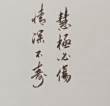 慧極必傷
情深不壽